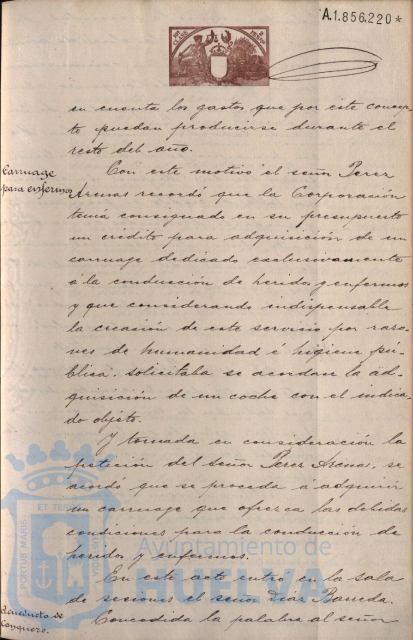 A.1.856.220*
en cuenta los gastos que por este concep-
to puedan producirse durante el
resto del año.
Carruage
para enfermos
Con este motivo el señor Perez
Arenas recordó que la Corporación
tenia consignado en su presupuesto
un crédito para adquisición de un
carruage dedicado exclusivamente
á la conducción de heridos y enfermos
y que considerando indispensable
la creación de este servicio por razo-
nes de humanidad é higiene pú-
blica, solicitaba se acordase la ad-
quisición de un coche con el indica-
do objeto.
Y tomada en consideración la
petición del señor Perez Arenas, se
acordó que se proceda á adquirir
un carruage que ofrezca las debidas
condiciones para la conducción de
heridos y enfermos.
En este acto entró en la sala
de sesiones el señor Diaz Barreda.
Acueducto de
Conquero.
Concedida la palabra al señor
Ayuntamiento de
HUELVA
PORTUS MARIS
ET TERRÆ